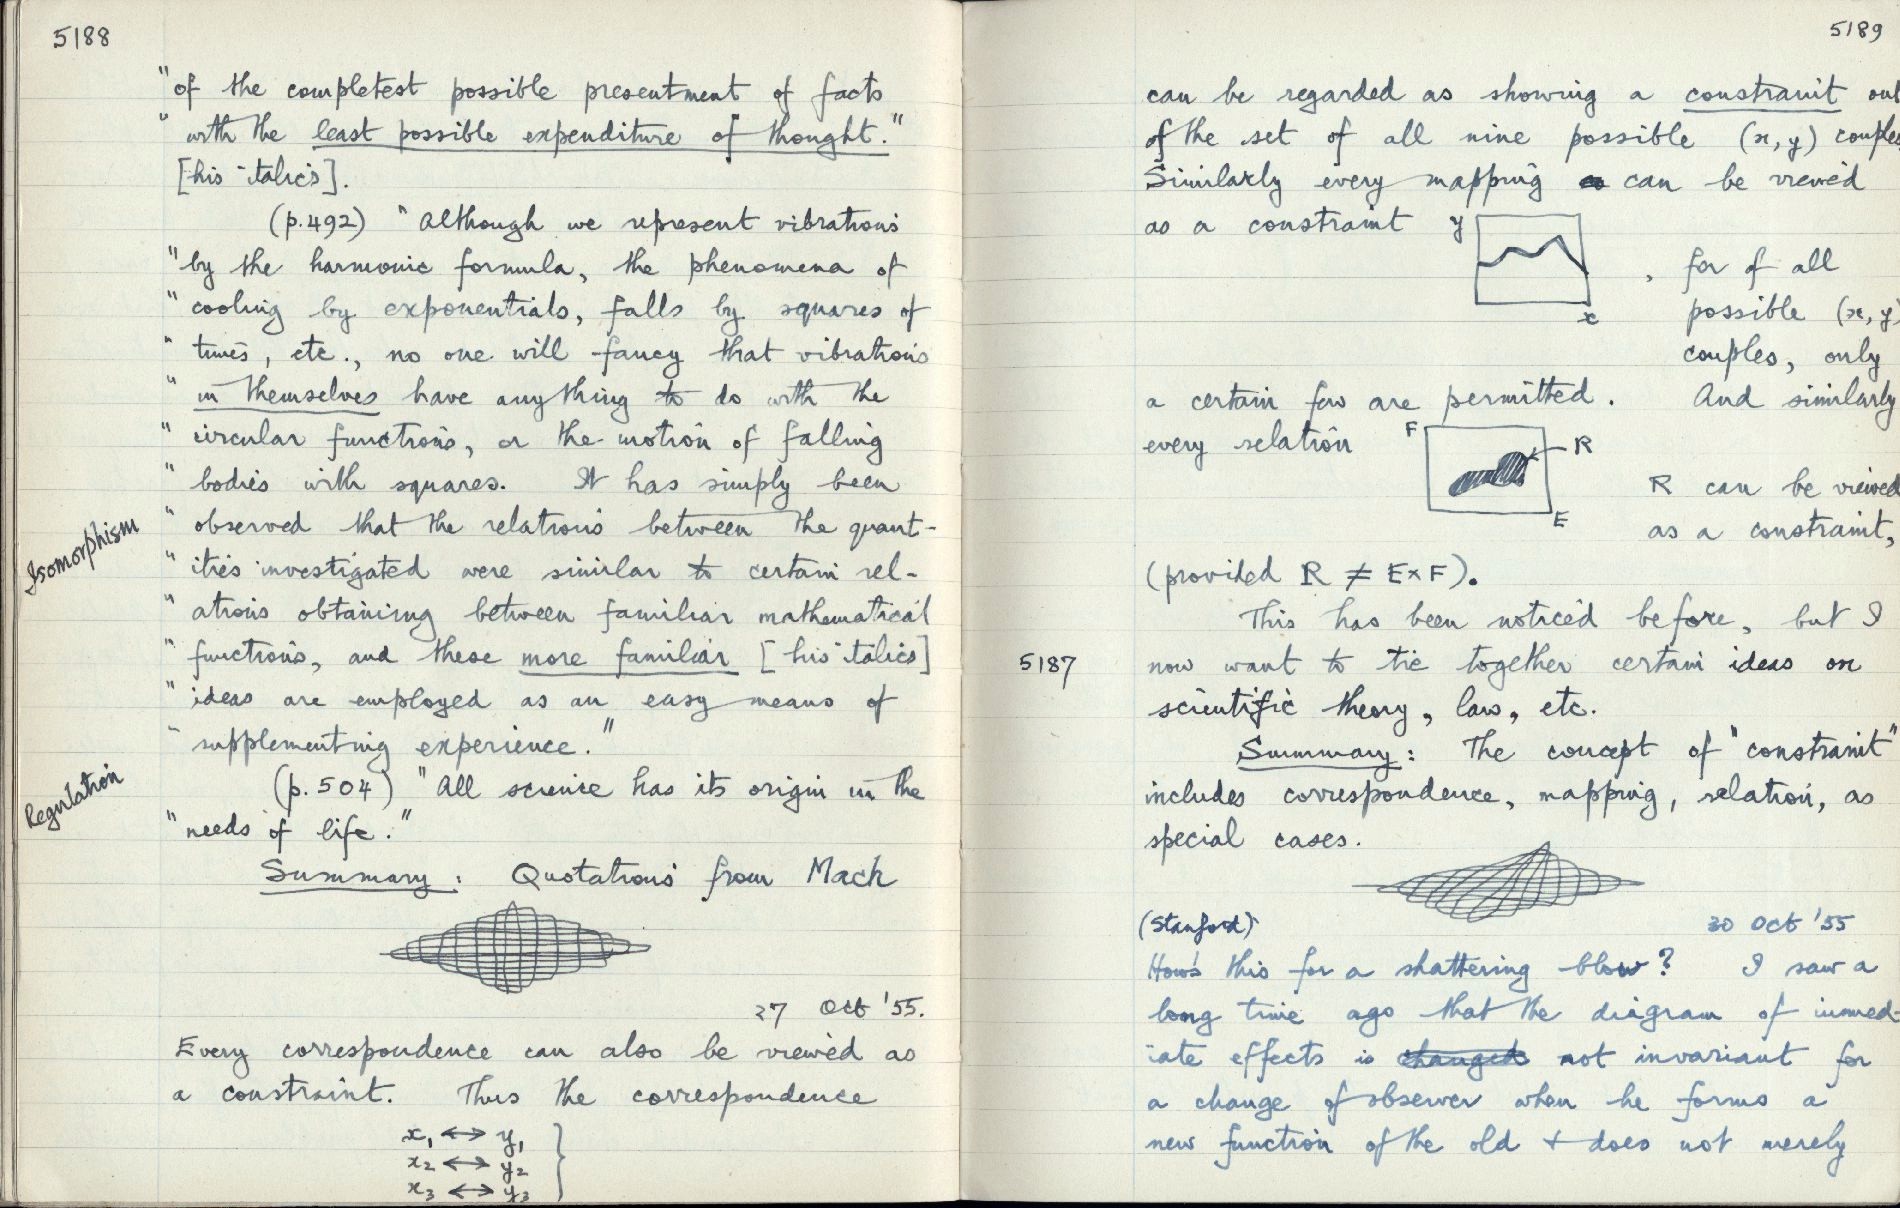 5188
"of the completest possible presentment of facts
"with the least possible expenditure of thought."
[his italics].
(p.492) "Although we represent vibrations
"by the harmonic formula, the phenomena of
"cooling by exponentials, falls by squares of
"times, etc., no one will fancy that vibrations
"in themselves have anything to do with the
"circular functions, or the motion of falling
"bodies with squares. It has simply been
"observed that the relations between the quant-
Isomorphism
"ities investigated were similar to certain rel-
"ations obtaining between familiar mathematical
"functions, and these more familiar [his italics]
"ideas are employed as an easy means of
"supplementing experience."
Regulation
(p.504) "All science has its origin in the
"needs of life."
Summary: Quotations from Mach
27 Oct '55.
Every correspondence can also be viewed as
a constraint. Thus the correspondence
x₁ ↔ y₁
x₂ ↔ y₂
x₃ ↔ y₃ }
5189
can be regarded as showing a constraint out
of the set of all nine possible (x, y) couples
Similarly every mapping can be viewed
as a constraint
y
x
, for of all
possible (x, y)
couples, only
a certain few are permitted. And similarly
every relation
F
R
E
R can be viewed
as a constraint,
(provided R ≠ E×F).
This has been noticed before, but I
5187
now want to tie together certain ideas on
scientific theory, law, etc.
Summary: The concept of "constraint"
includes correspondence, mapping, relation, as
special cases.
(Stanford)
30 Oct '55
How's this for a shattering blow? I saw a
long time ago that the diagram of immed-
iate effects is changed not invariant for
a change of observer when he forms a
new function of the old + does not merely